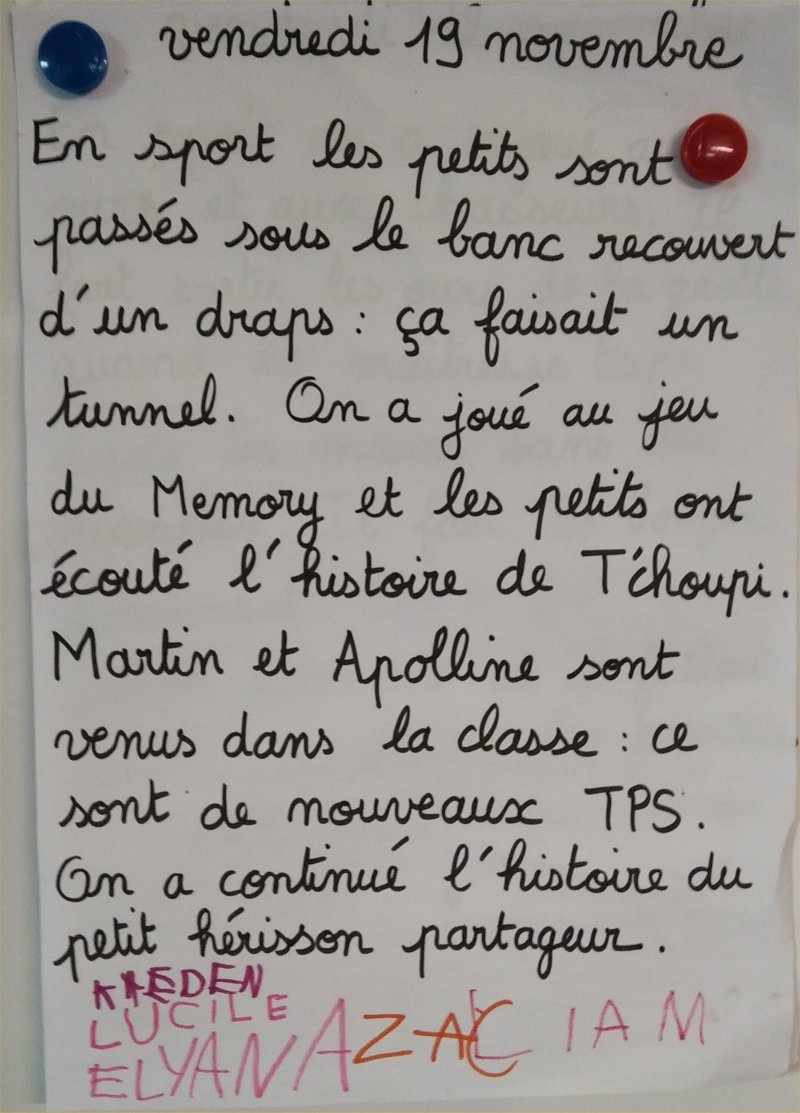 vendredi 19 novembre
En sport les petits sont
passés sous le banc recouvert
d'un draps : ça faisait un
tunnel. On a joué au jeu
du Memory et les petits ont
écouté l'histoire de T'choupi.
Martin et Apolline sont
venus dans la classe : ce
sont de nouveaux TPS.
On a continué l'histoire du
petit hérisson partageur.
LUCILE
ELYANA ZAC LIAM